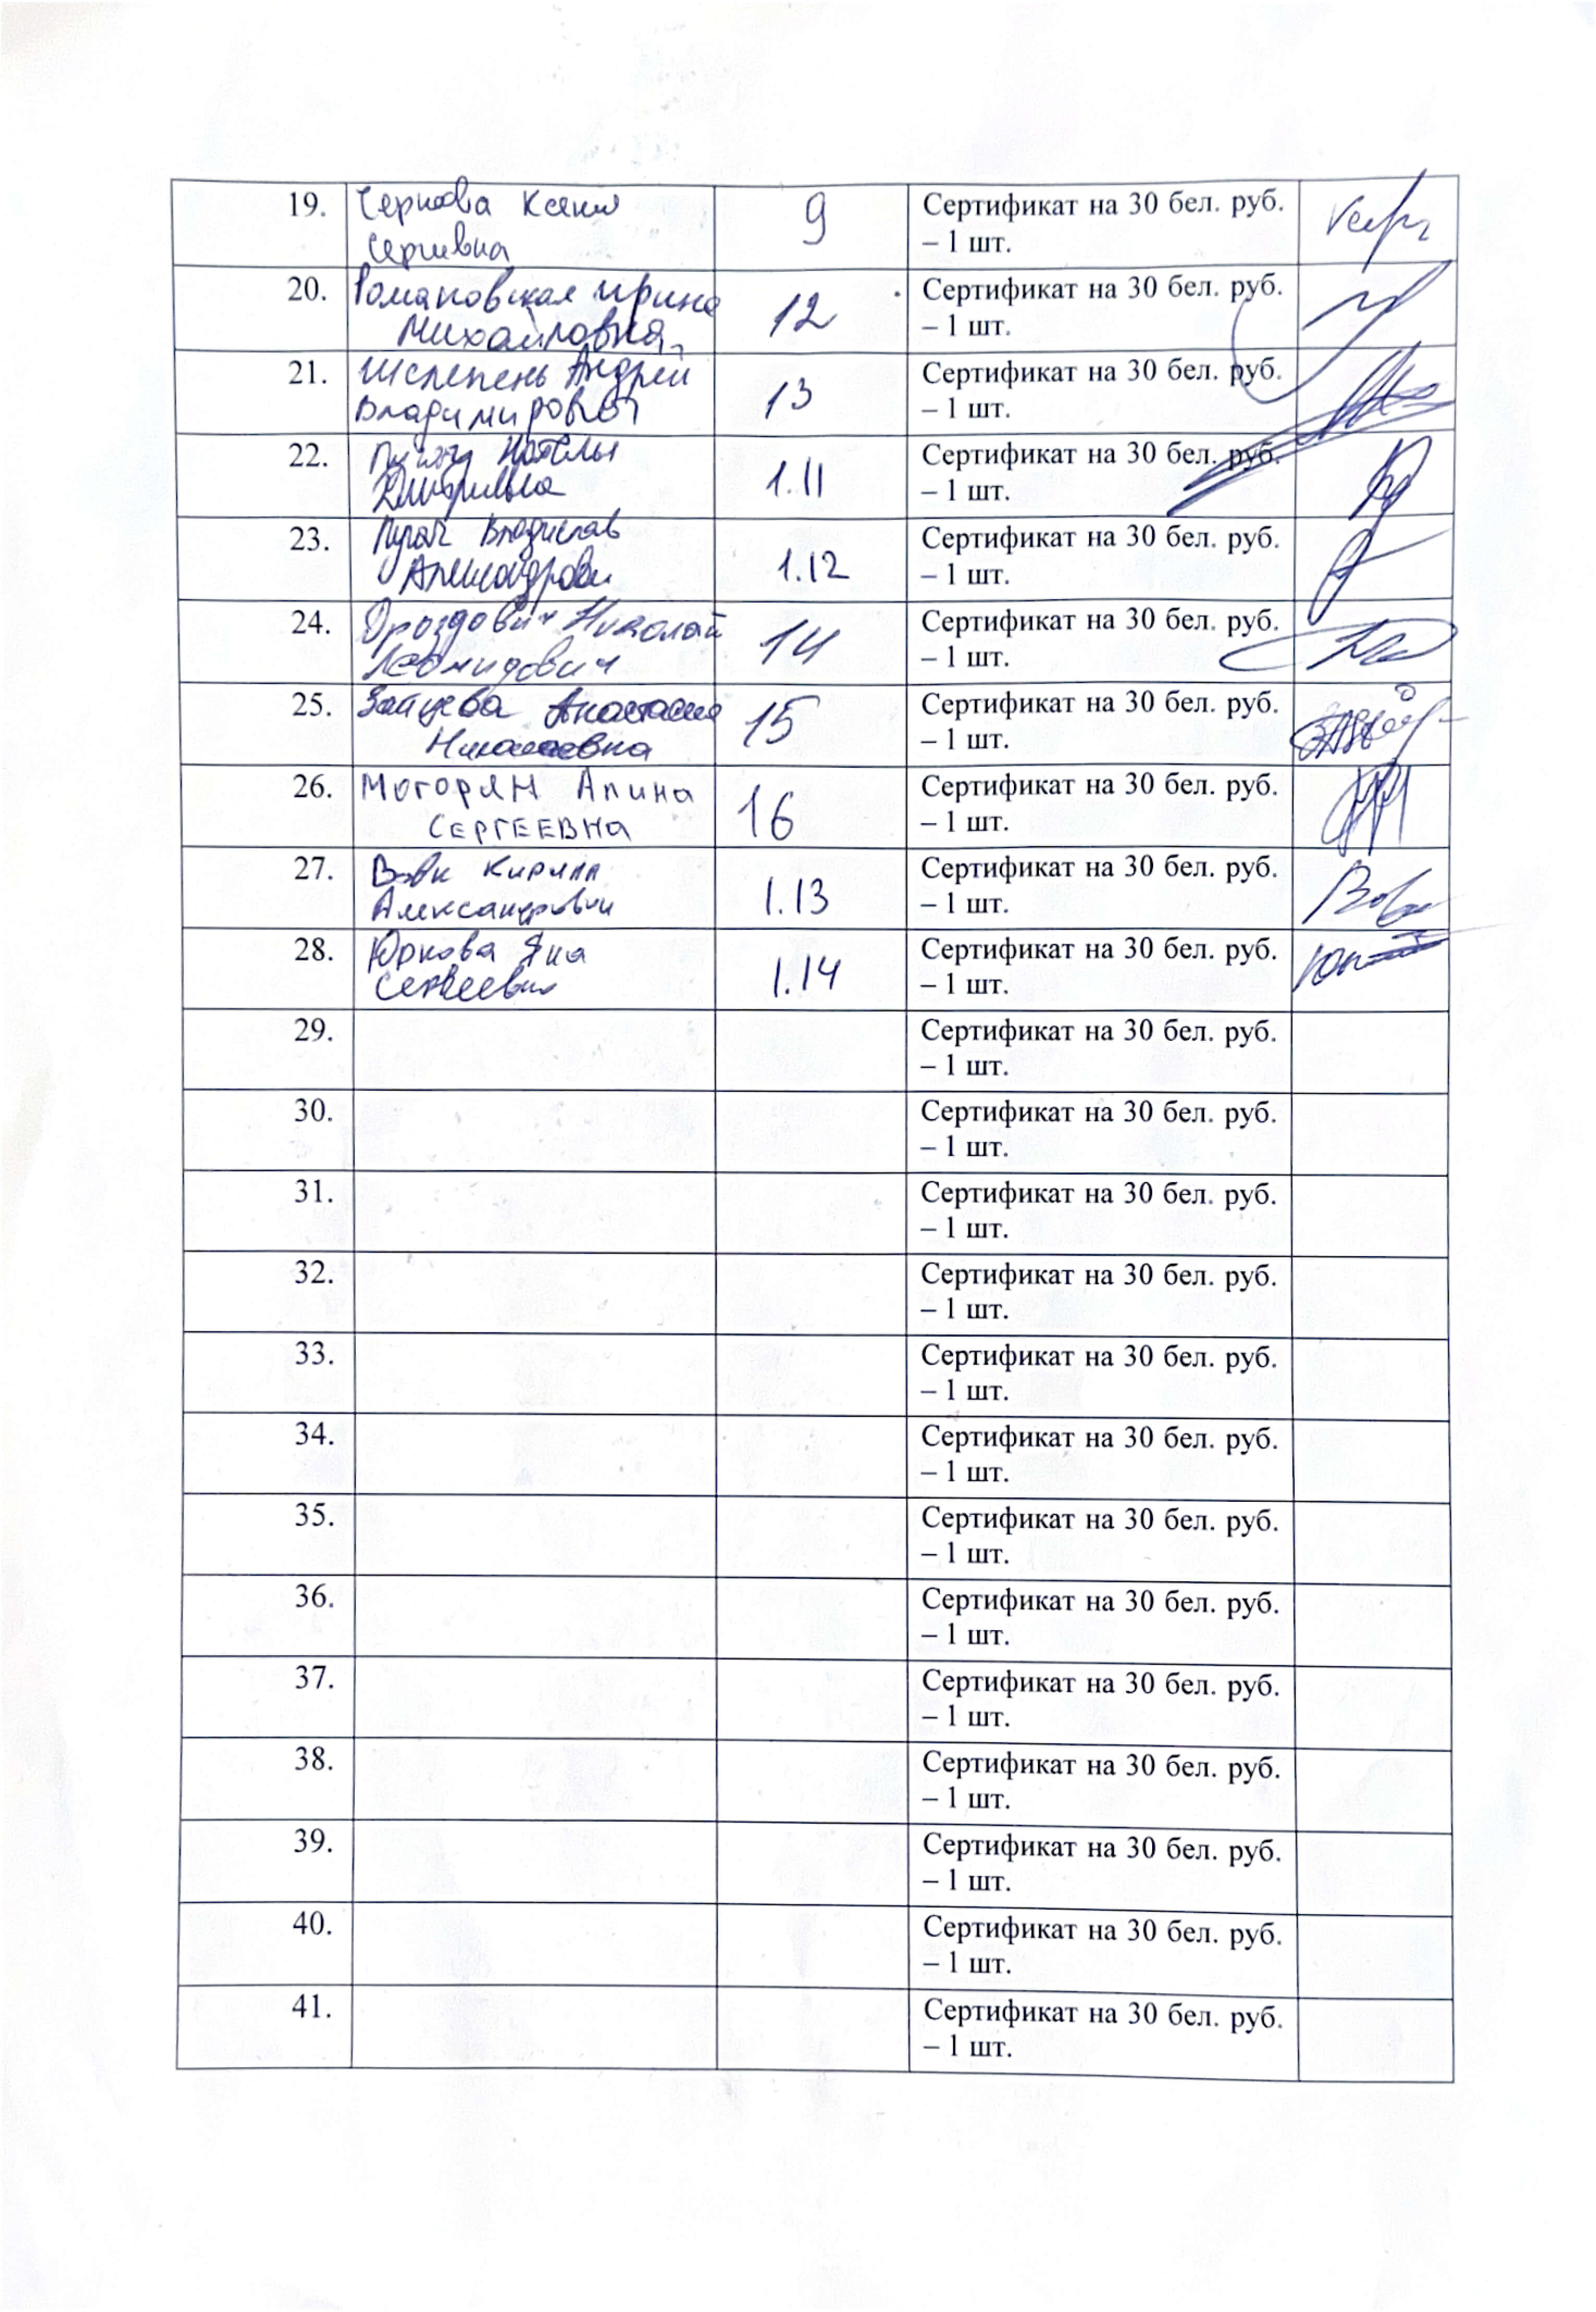 19. Чернова Ксения 9 Сертификат на 30 бел. руб.
– 1 шт.
20. Романовская Ирина 12 Сертификат на 30 бел. руб.
Михайловна – 1 шт.
21. Шелепень Андрей 13 Сертификат на 30 бел. руб.
Владимирович – 1 шт.
22. 1.11 Сертификат на 30 бел. руб.
– 1 шт.
23. Владислав 1.12 Сертификат на 30 бел. руб.
– 1 шт.
24. Дроздович Николай 14 Сертификат на 30 бел. руб.
Леонидович – 1 шт.
25. Зайцева Анастасия 15 Сертификат на 30 бел. руб.
Николаевна – 1 шт.
26. Могорян Алина 16 Сертификат на 30 бел. руб.
СЕРГЕЕВНА – 1 шт.
27. Вовк Кирилл 1.13 Сертификат на 30 бел. руб.
Александрович – 1 шт.
28. Юркова Яна 1.14 Сертификат на 30 бел. руб.
– 1 шт.
29. Сертификат на 30 бел. руб.
– 1 шт.
30. Сертификат на 30 бел. руб.
– 1 шт.
31. Сертификат на 30 бел. руб.
– 1 шт.
32. Сертификат на 30 бел. руб.
– 1 шт.
33. Сертификат на 30 бел. руб.
– 1 шт.
34. Сертификат на 30 бел. руб.
– 1 шт.
35. Сертификат на 30 бел. руб.
– 1 шт.
36. Сертификат на 30 бел. руб.
– 1 шт.
37. Сертификат на 30 бел. руб.
– 1 шт.
38. Сертификат на 30 бел. руб.
– 1 шт.
39. Сертификат на 30 бел. руб.
– 1 шт.
40. Сертификат на 30 бел. руб.
– 1 шт.
41. Сертификат на 30 бел. руб.
– 1 шт.